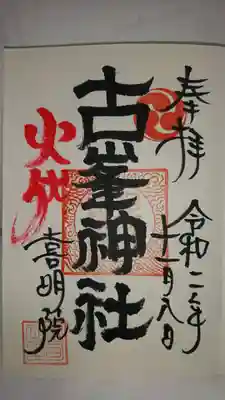 奉拝
令和二年
十一月八日
古峯神社
火伏
喜明院